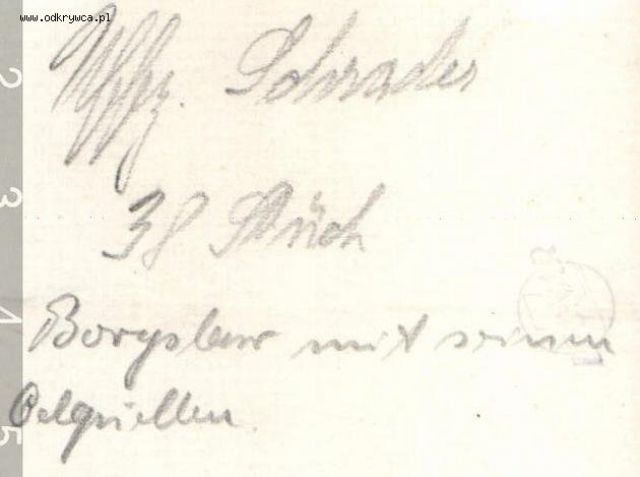 www.odkrywca.pl
Uffz. Schrader
38 Stück
Boryslaw mit seinen
Oelquellen.
2
3
4
5